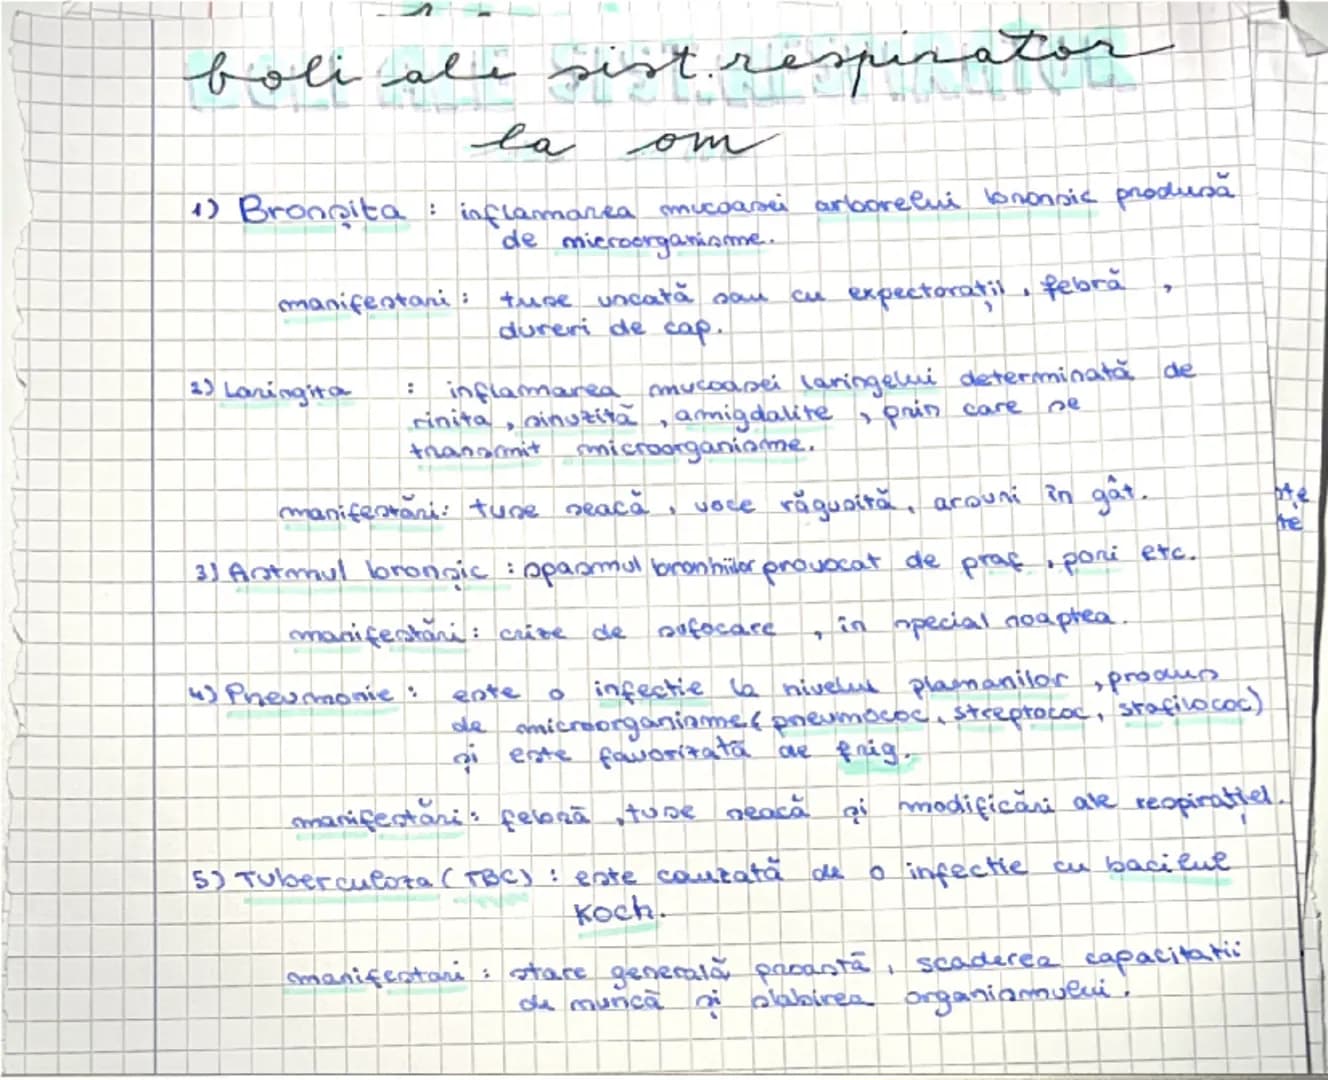 boli ale sist. respirator
la om
1) Bronșita : inflamarea mucoasei arborelui bronșic produsă
de microorganisme.
manifestari : tuse uscată sau cu expectorații , febră ,
dureri de cap.
2) Laringita : inflamarea mucoasei laringelui determinată de
rinita , sinuzită , amigdalite , prin care se
transmit microorganisme.
manifestări: tuse seacă , voce răgusită, arsuri în gât.
3) Astmul bronșic : spasmul bronhiilor provocat de praf , pori etc.
manifestări : crize de sufocare , in special noaptea.
4) Pneumonie : este o infectie la nivelul plamanilor , produs
de microorganisme ( pneumococ, streptococ, stafilococ)
și este favorizată de frig.
manifestări : febră , tuse seacă și modificări ale respirației.
5) Tuberculoza ( TBC) : este cauzată de o infectie cu bacilul
Koch.
manifestari : stare generală proastă , scaderea capacitatii
de muncă și slabirea organismului.